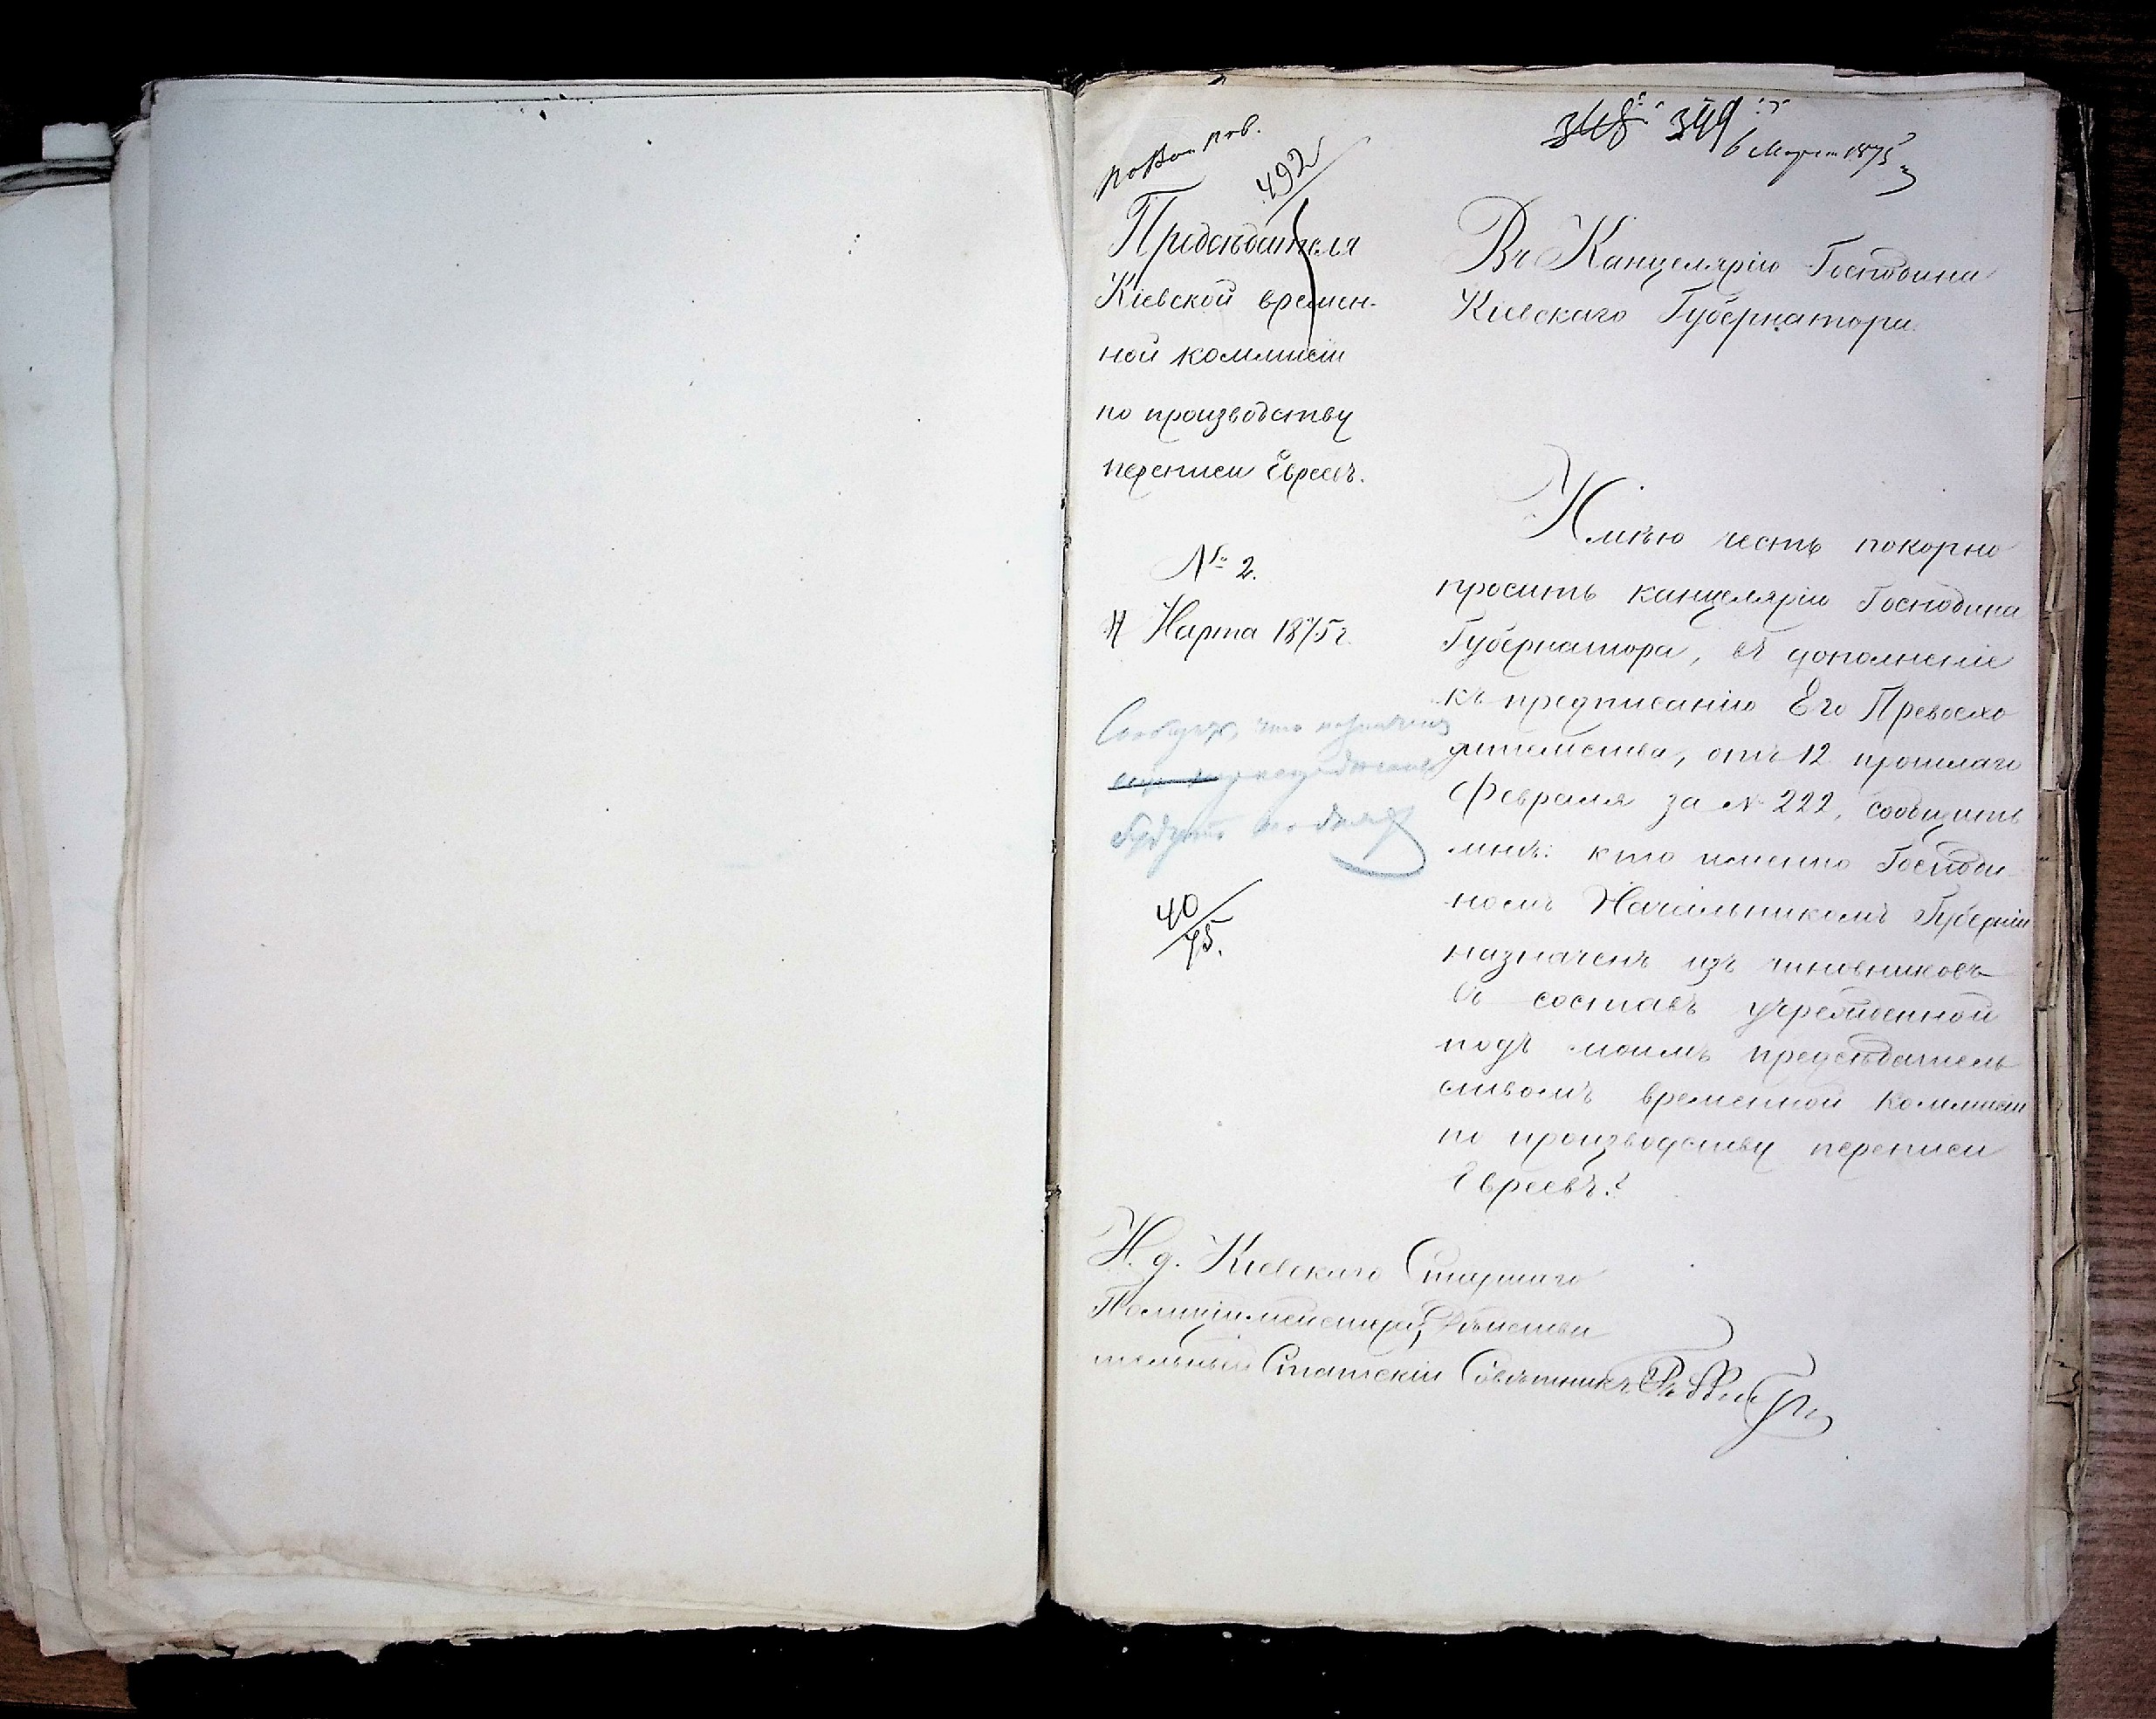 348 349
6 Марта 1875
492
Предсѣдателя
Кіевской времен-
ной коммисіи
по производству
переписи Евреевъ.
№ 2.
4 Марта 1875 г.
Сообщить, что
будутъ
40/75.
Въ Канцелярію Господина
Кіевскаго Губернатора.
Имѣю честь покорно
просить канцелярію Господина
Губернатора, въ дополненіе
къ предписанію Его Превосхо
дительства, отъ 12 прошлаго
Февраля за № 222, сообщить
мнѣ: кто именно Господи-
номъ Начальникомъ Губерніи
назначенъ изъ чиновниковъ
въ составъ учрежденной
подъ моимъ предсѣдатель
ствомъ временной коммисіи
по производству переписи
Евреевъ?
И. д. Кіевскаго Старшаго
Полиціймейстера, Дѣйстви
тельный Статскій Совѣтникъ